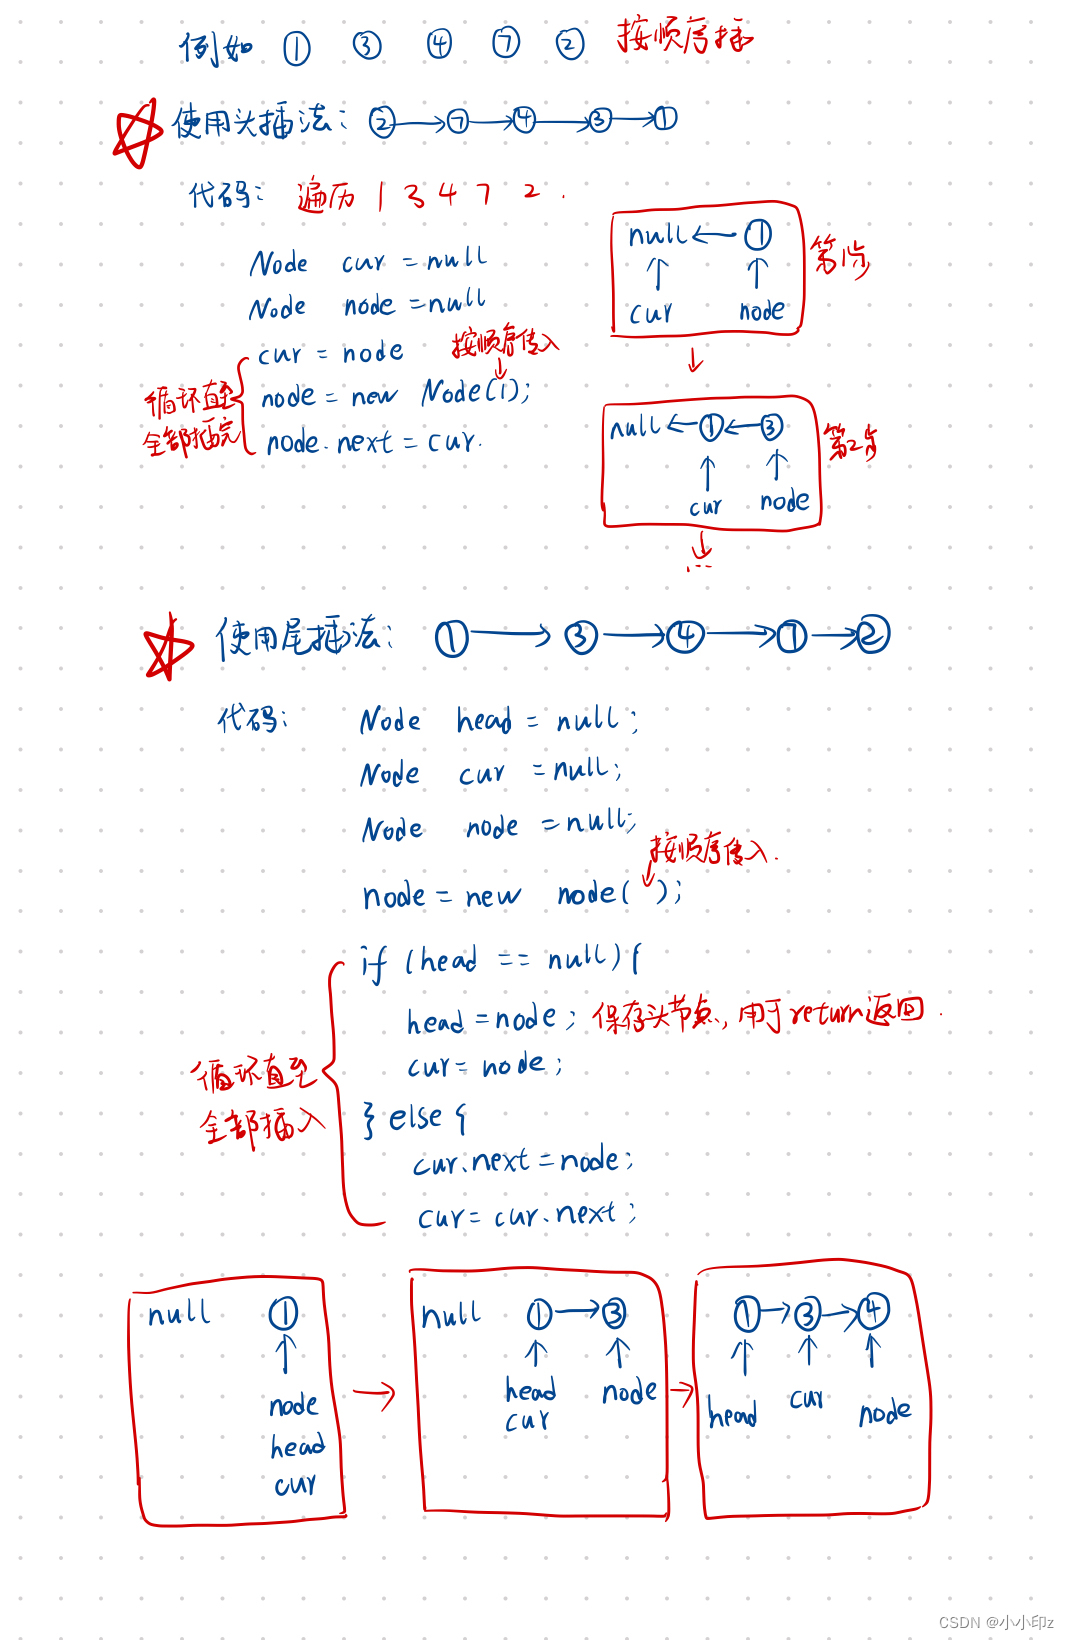 例如 ① ③ ④ ⑦ ② 按顺序插
使用头插法: ② → ⑦ → ④ → ③ → ①
代码: 遍历 1 3 4 7 2 .
Node cur = null
Node node = null
cur = node
按顺序传入
node = new Node(1);
node.next = cur.
循环直至
全部插完
null ← ①
cur node
第1步
null ← ① ← ③
cur node
第2步
...
使用尾插法: ① → ③ → ④ → ⑦ → ②
代码: Node head = null;
Node cur = null;
Node node = null;
按顺序传入.
node = new node( );
if (head == null){
head = node; 保存头节点, 用于return返回.
cur = node;
} else {
cur.next = node;
cur = cur.next;
循环直至
全部插入
null ①
node
head
cur
null ① → ③
head node
cur
① → ③ → ④
head cur node
CSDN @小小印z